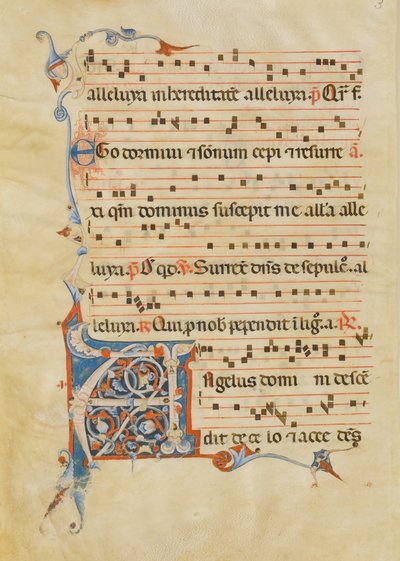 3
alleluya in hereditate alleluya. p̄ Qm̄ f.
EGo dormivi ⁊ sōnum cepi ⁊ resurre a.
xi qm̄ dominus suscepit me all'a alle
luya. p̄ D̄s qo. Surrex̄ dn̄s de sepulc̄o. al
leluya. R Qui p nob pependit ī lig̃o. a.
ANgelus domi ni descē
dit de ce lo ⁊ acce dēs